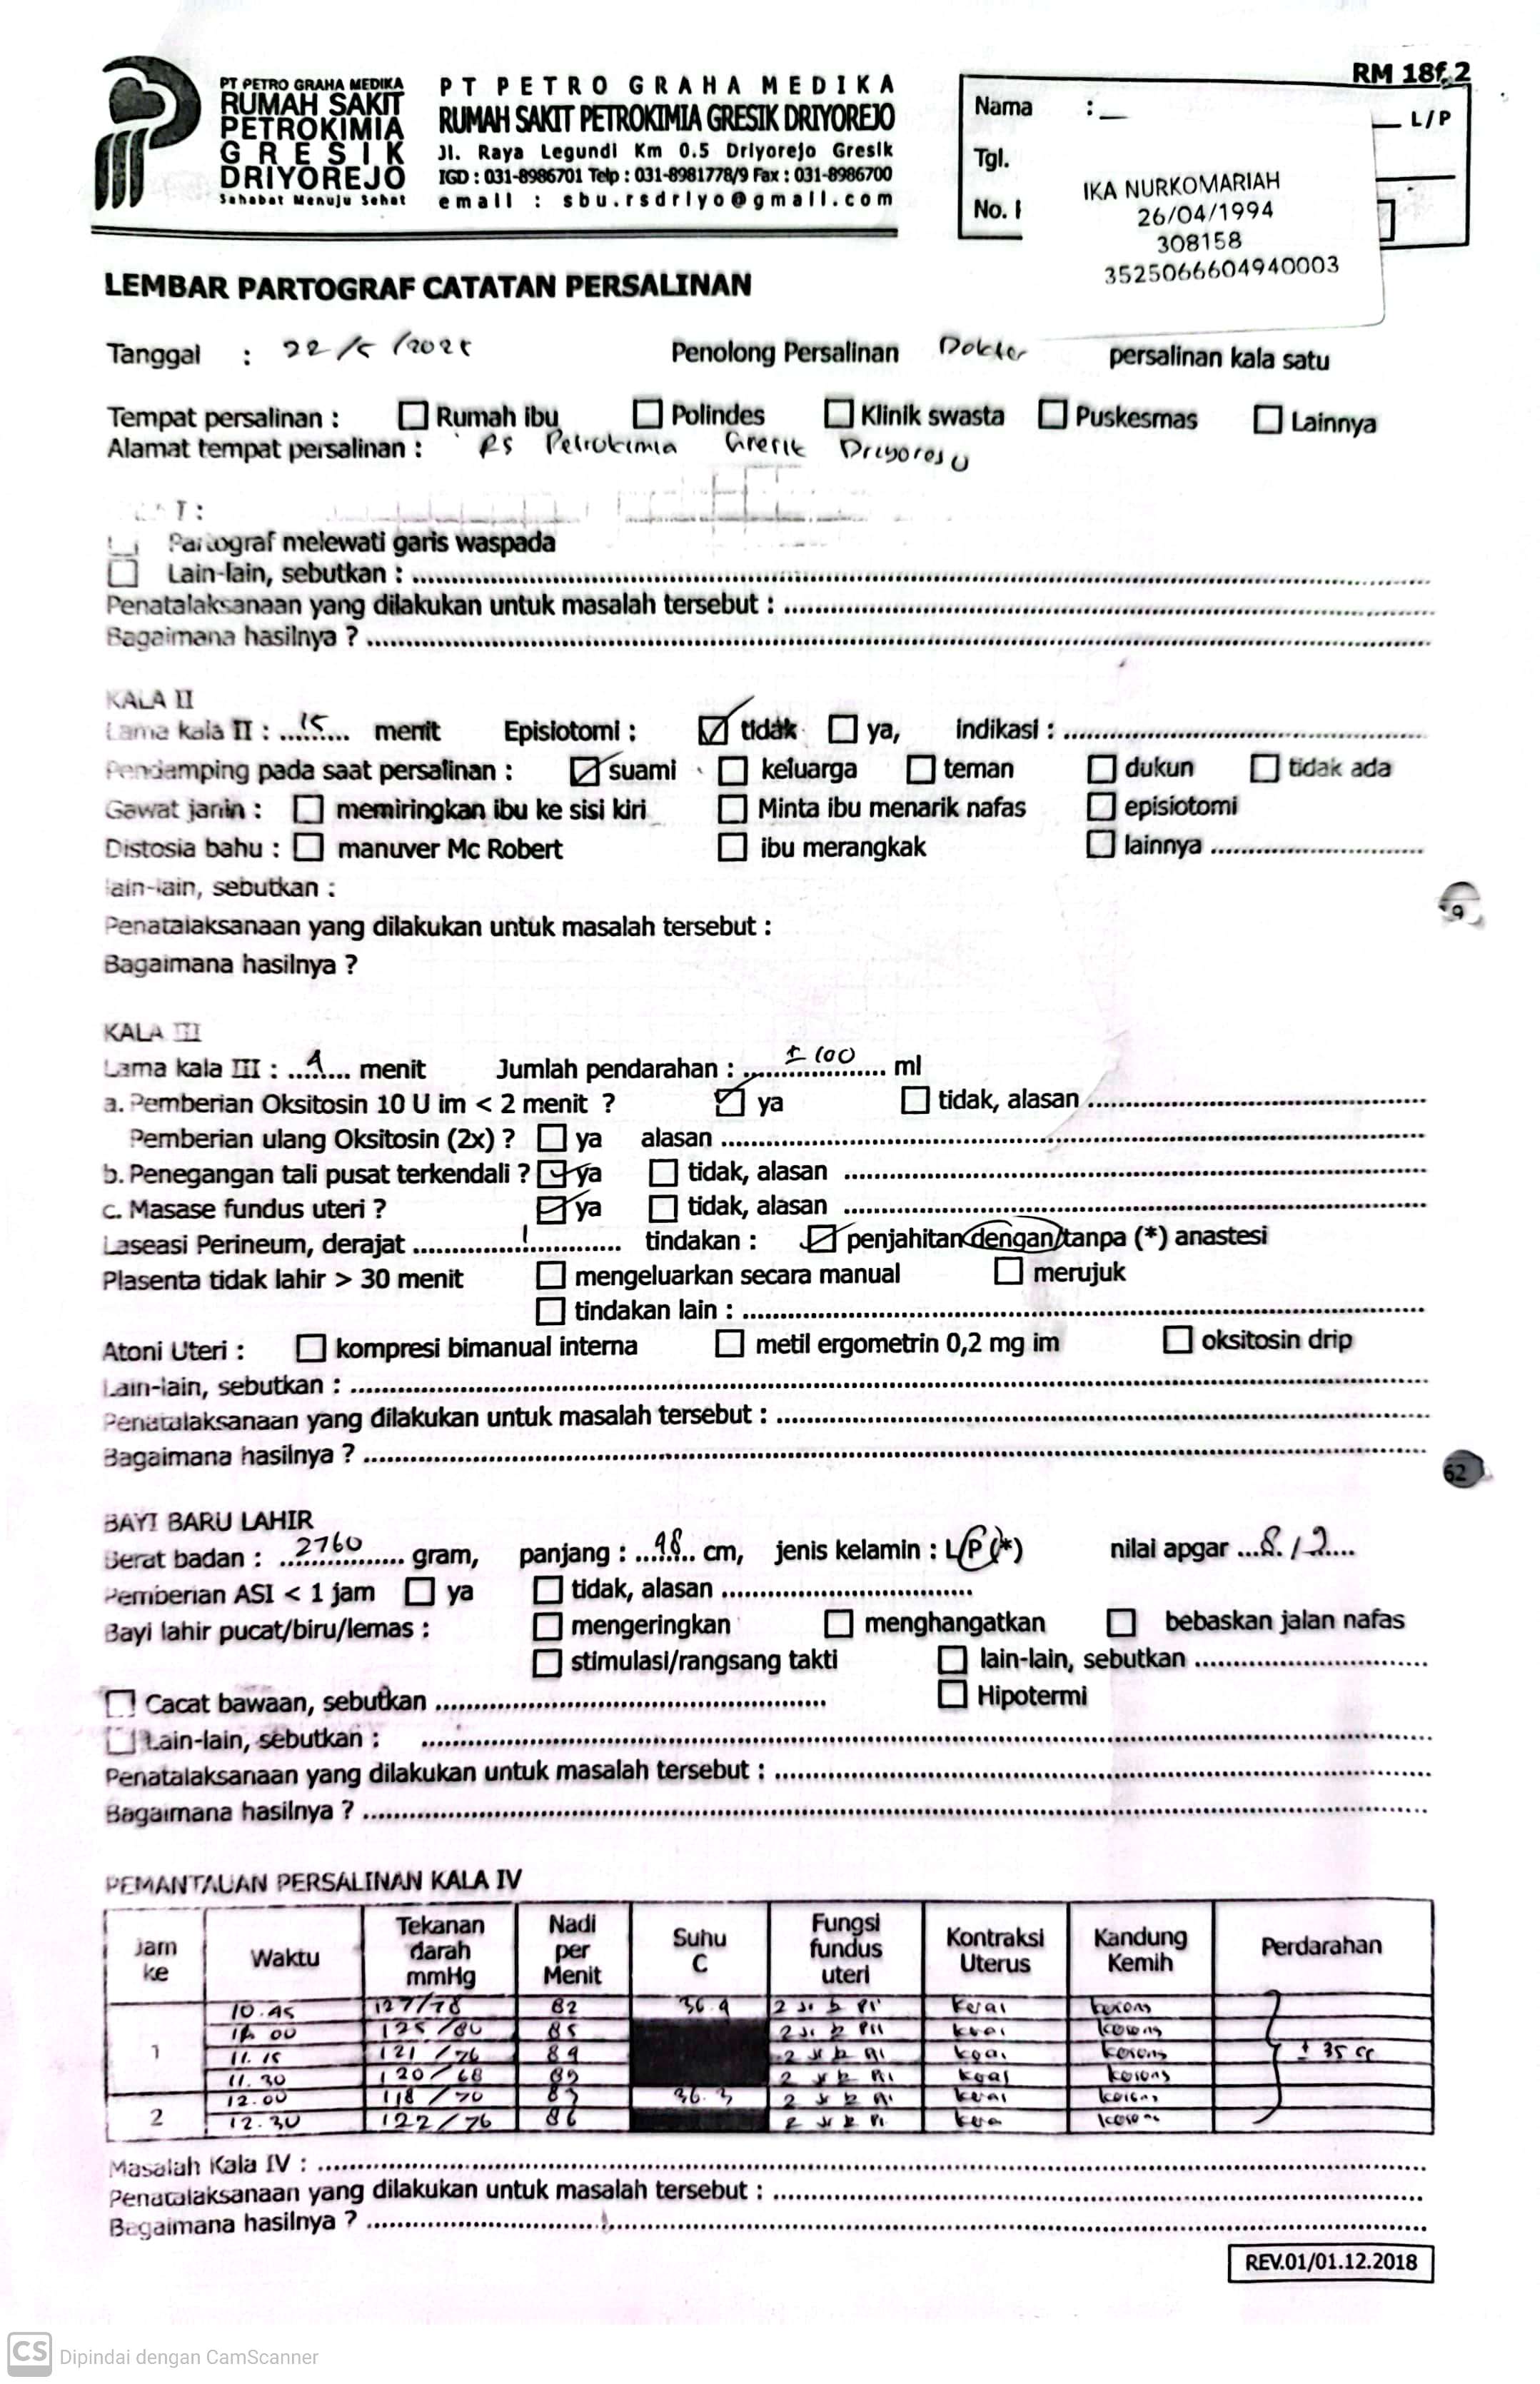 RM 18f.2
PT PETRO GRAHA MEDIKA
RUMAH SAKIT
PETROKIMIA
GRESIK
DRIYOREJO
Sahabat Menuju Sehat
PT PETRO GRAHA MEDIKA
RUMAH SAKIT PETROKIMIA GRESIK DRIYOREJO
Jl. Raya Legundi Km 0.5 Driyorejo Gresik
IGD : 031-8986701 Telp : 031-8981778/9 Fax : 031-8986700
email : sbu.rsdriyo@gmail.com
Nama : L/P
Tgl.
No.
IKA NURKOMARIAH
26/04/1994
308158
3525066604940003
LEMBAR PARTOGRAF CATATAN PERSALINAN
Tanggal : 22/5/2025 Penolong Persalinan Dokter persalinan kala satu
Tempat persalinan : Rumah ibu Polindes Klinik swasta Puskesmas Lainnya
Alamat tempat persalinan : RS Petrokimia Gresik Driyorejo
Partograf melewati garis waspada
Lain-lain, sebutkan :
Penatalaksanaan yang dilakukan untuk masalah tersebut :
Bagaimana hasilnya ?
KALA II
Lama kala II : 15 menit Episiotomi : tidak ya, indikasi :
Pendamping pada saat persalinan : suami keluarga teman dukun tidak ada
Gawat janin : memiringkan ibu ke sisi kiri Minta ibu menarik nafas episiotomi
Distosia bahu : manuver Mc Robert ibu merangkak lainnya
lain-lain, sebutkan :
Penatalaksanaan yang dilakukan untuk masalah tersebut :
Bagaimana hasilnya ?
KALA III
Lama kala III : menit Jumlah pendarahan : ± 100 ml
a. Pemberian Oksitosin 10 U im < 2 menit ? ya tidak, alasan
Pemberian ulang Oksitosin (2x) ? ya alasan
b. Penegangan tali pusat terkendali ? ya tidak, alasan
c. Masase fundus uteri ? ya tidak, alasan
Laseasi Perineum, derajat 1 tindakan : penjahitan dengan/tanpa (*) anastesi
Plasenta tidak lahir > 30 menit mengeluarkan secara manual merujuk
tindakan lain :
Atoni Uteri : kompresi bimanual interna metil ergometrin 0,2 mg im oksitosin drip
Lain-lain, sebutkan :
Penatalaksanaan yang dilakukan untuk masalah tersebut :
Bagaimana hasilnya ?
62
BAYI BARU LAHIR
Berat badan : 2760 gram, panjang : 48 cm, jenis kelamin : L/P (*) nilai apgar 8 /
Pemberian ASI < 1 jam ya tidak, alasan
Bayi lahir pucat/biru/lemas : mengeringkan menghangatkan bebaskan jalan nafas
stimulasi/rangsang takti lain-lain, sebutkan
Cacat bawaan, sebutkan Hipotermi
Lain-lain, sebutkan :
Penatalaksanaan yang dilakukan untuk masalah tersebut :
Bagaimana hasilnya ?
PEMANTAUAN PERSALINAN KALA IV
Jam ke Waktu Tekanan darah mmHg Nadi per Menit Suhu C Fungsi fundus uteri Kontraksi Uterus Kandung Kemih Perdarahan
1 10.45 127/78 82 keras kosong
11.00 125/80 85 kosong
11.15 121/76 89 kosong ± 35 cc
11.30 120/68 kosong
2 12.00 118/70 36.3 kosong
12.30 122/76 86
Masalah Kala IV :
Penatalaksanaan yang dilakukan untuk masalah tersebut :
Bagaimana hasilnya ?
REV.01/01.12.2018
CS Dipindai dengan CamScanner